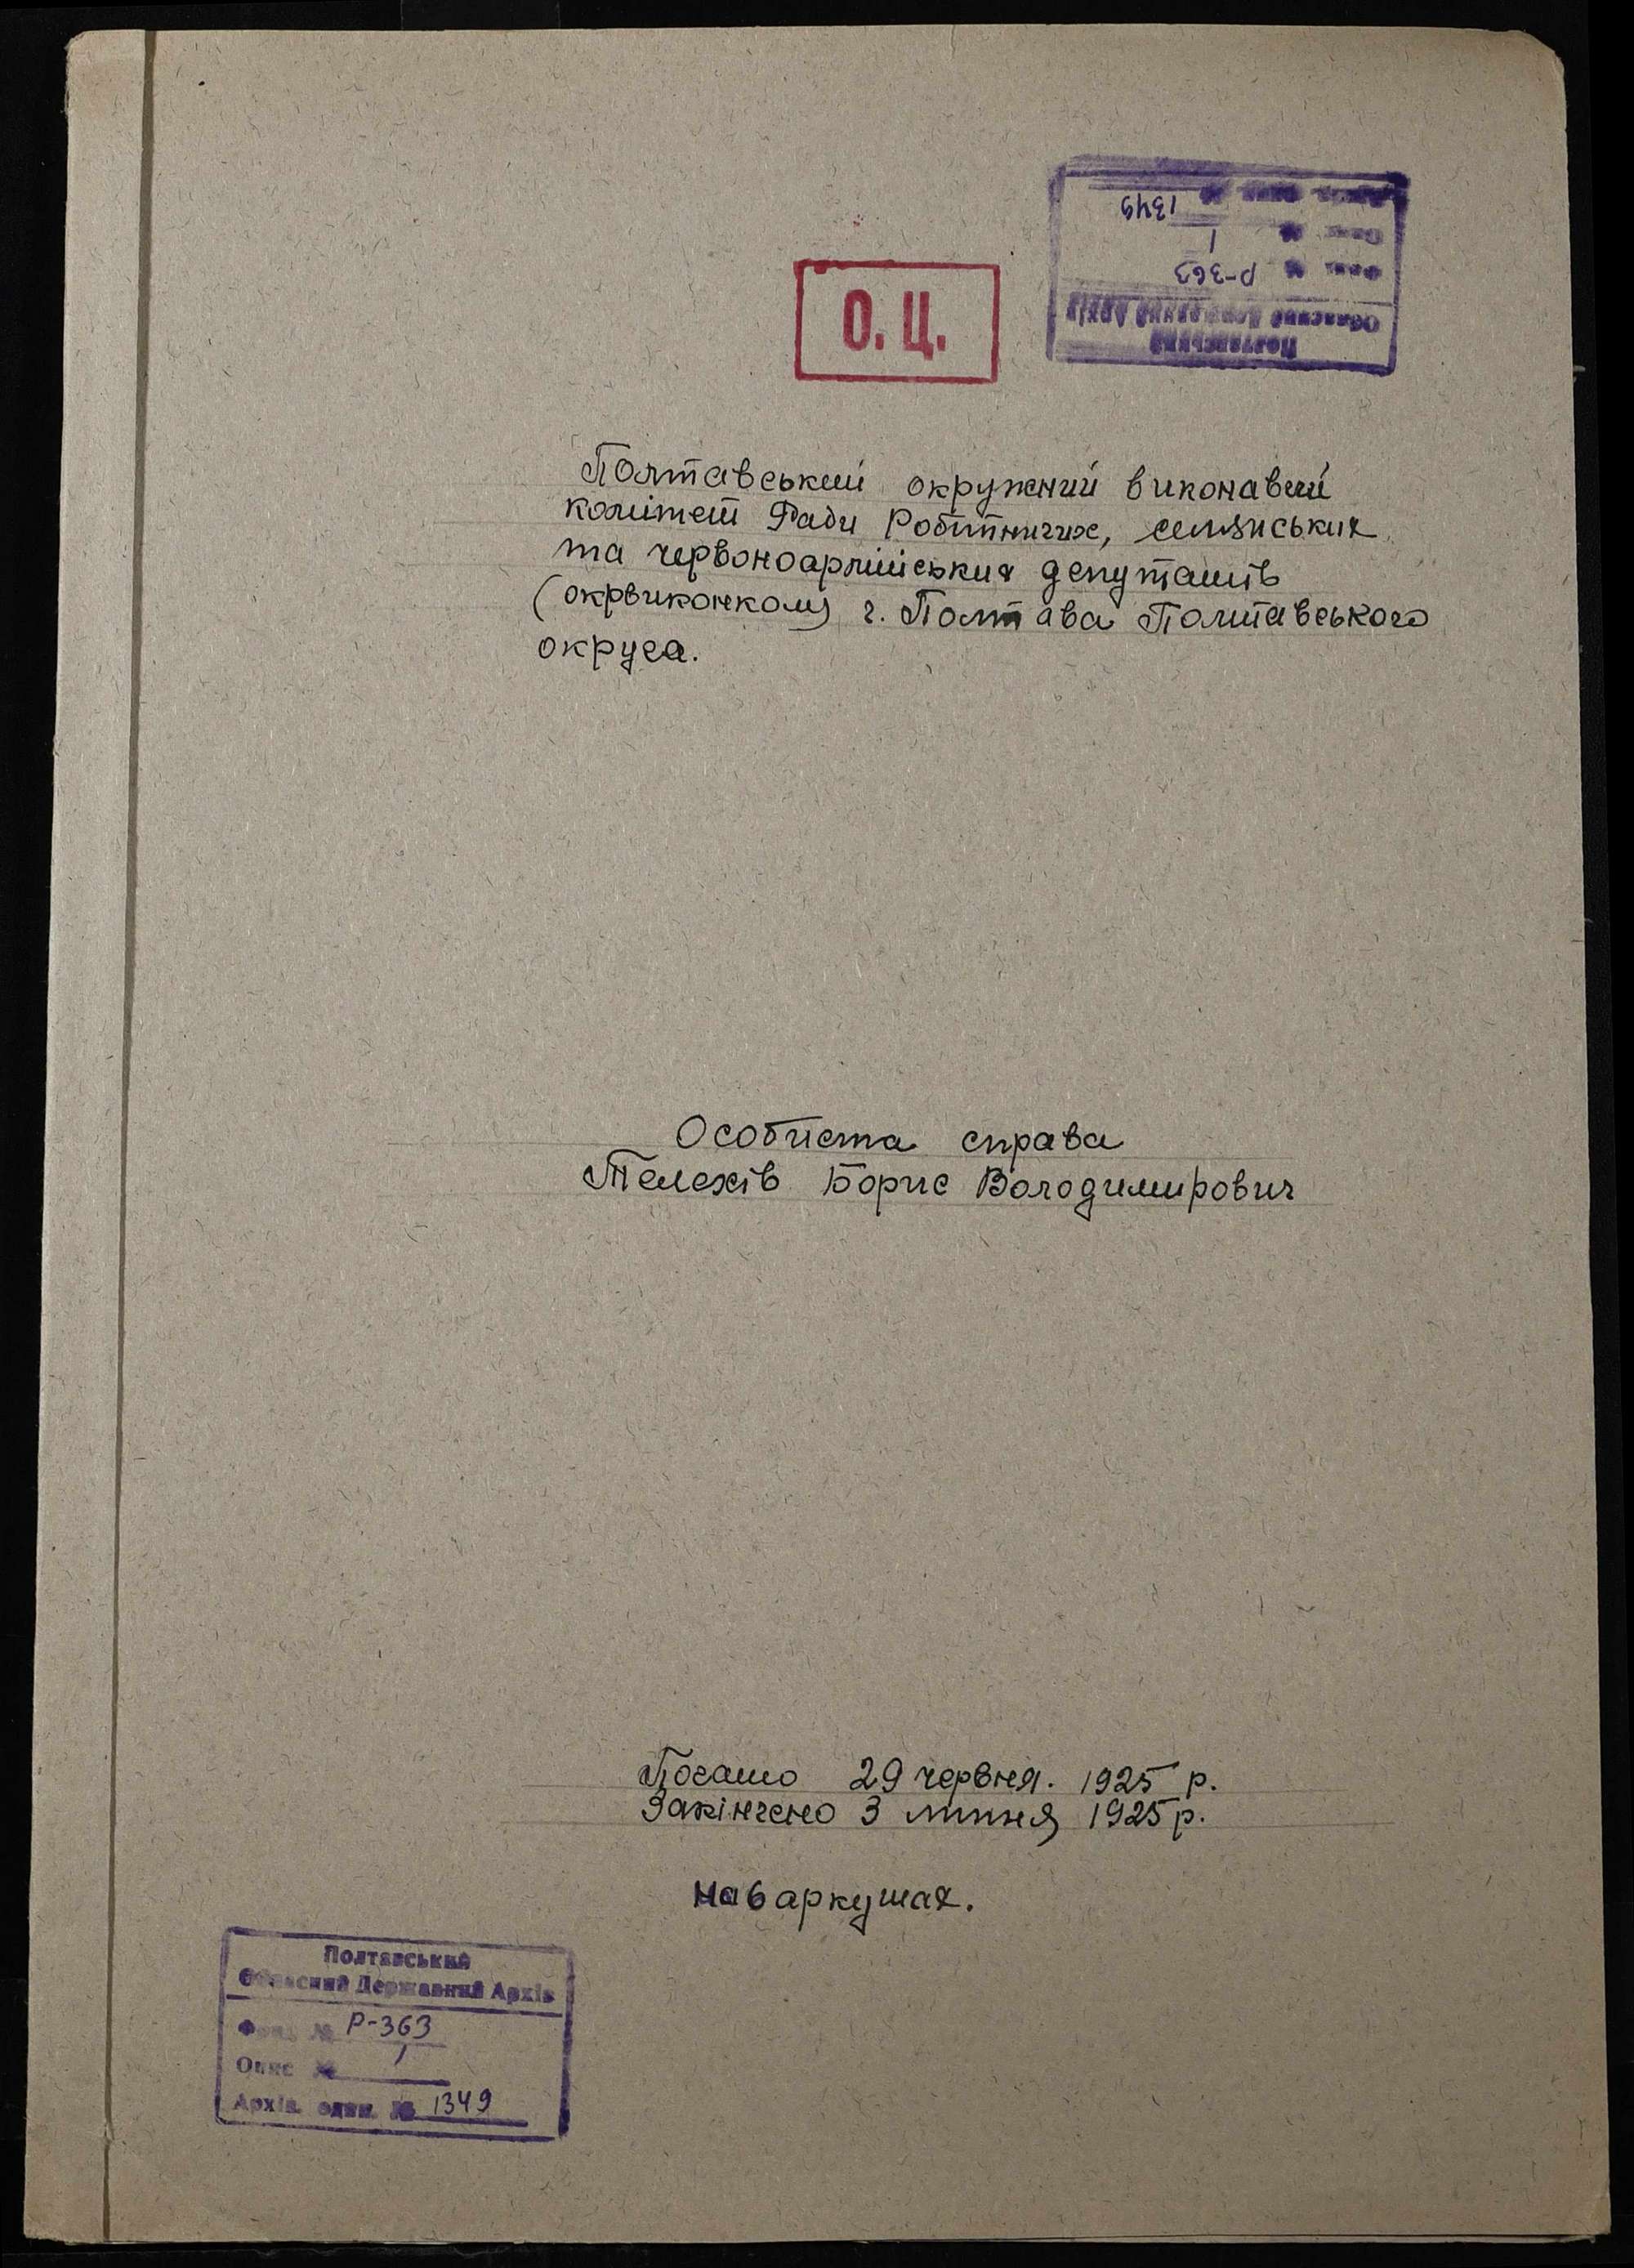 Полтавський
Обласний Державний Архів
Фонд № Р-363
Опис № 1
Архів. один. № 1349
О. Ц.
Полтавський окружний виконавчий
комітет Ради Робітничих, селянських
та червоноармійських депутатів
(окрвиконком) г. Полтава Полтавського
округа.
Особиста справа
Телехів Борис Володимирович
Почато 29 червня. 1925 р.
Закінчено 3 липня 1925 р.
На 6 аркушах.
Полтавський
Обласний Державний Архів
Фонд № Р-363
Опис № 1
Архів. один. № 1349